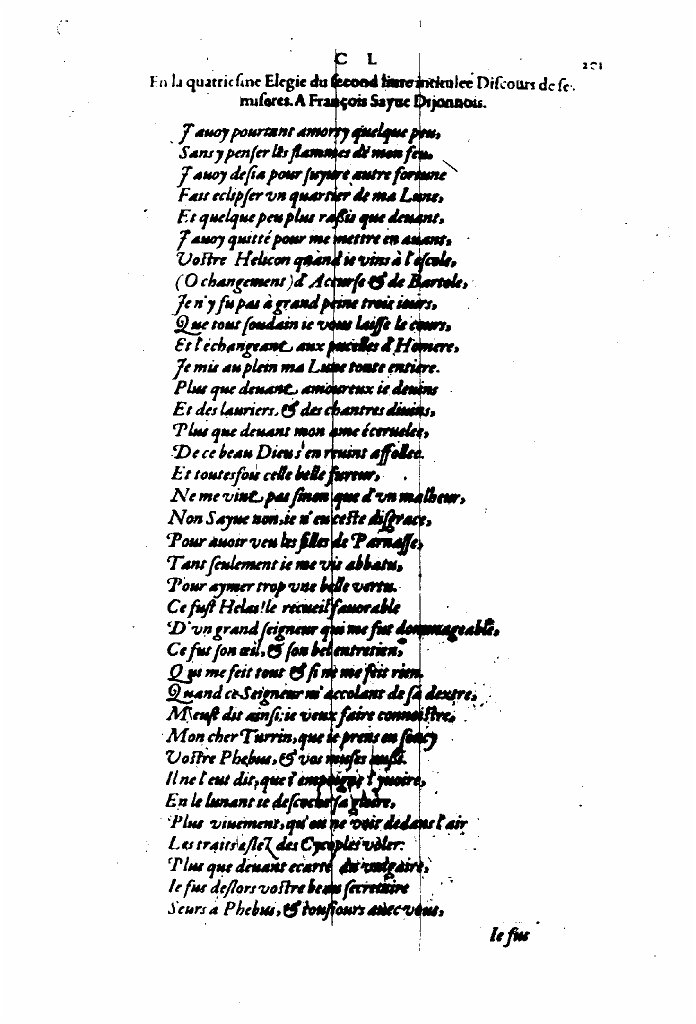 C L
201
En la quatriesme Elegie du second liure intitulee Discours de ses
miseres. A François Sayue Dijonnois.
J'auoy pourtant amorty quelque peu,
Sans y penser les flammes de mon feu,
J'auoy desia pour suyure autre fortune
Fait eclipser vn quartier de ma Lune,
Et quelque peu plus rassis que deuant,
J'auoy quitté pour me mettre en auant,
Vostre Helicon quand ie vins à l'escole,
(O changement) d'Accurse & de Bartole,
Je n'y fu pas à grand peine trois iours,
Que tout soudain ie vous laisse le cours,
Et l'échangeant aux pucelles d'Homere,
Je mis au plein ma Lune toute entiere.
Plus que deuant amoureux ie deuins
Et des lauriers, & des chantres diuins,
Plus que deuant mon ame éceruelee,
De ce beau Dieu s'en reuint affollee.
Et toutesfois celle belle fureur,
Ne me vint pas sinon que d'vn malheur,
Non Sayue non, ie n'eu ceste disgrace,
Pour auoir veu les filles de Parnasse,
Tant seulement ie me vis abbatu,
Pour aymer trop vne belle vertu.
Ce fust Helas! le recueil fauorable
D'vn grand seigneur qui me fut dommageable,
Ce fut son œil, & son bel entretien,
Qui me feit tout & si ne me feit rien.
Quand ce Seigneur m'accolant de sa dextre,
M'eust dit ainsi: ie veux faire connoistre,
Mon cher Turrin, que ie prens en soucy
Vostre Phebus, & vos muses aussi.
Il ne l'eut dit, que i'empoigne l'yuoire,
En le lunant se descoche sa gloire,
Plus viuement, qu'on ne voit dedans l'air
Les traits aslez des Cycoples voler:
Plus que deuant ecarté du vulgaire,
Ie fus deslors vostre beau secretaire
Seurs a Phebus, & tousiours auec vous,
Ie fus